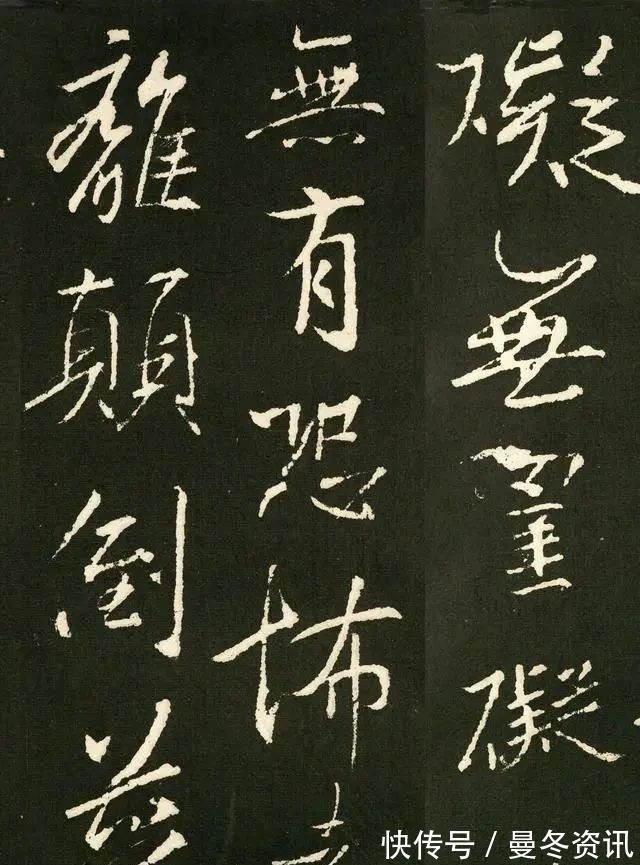 礙無罣礙
無有恐怖
離顛倒
快传号 / 曼冬资讯